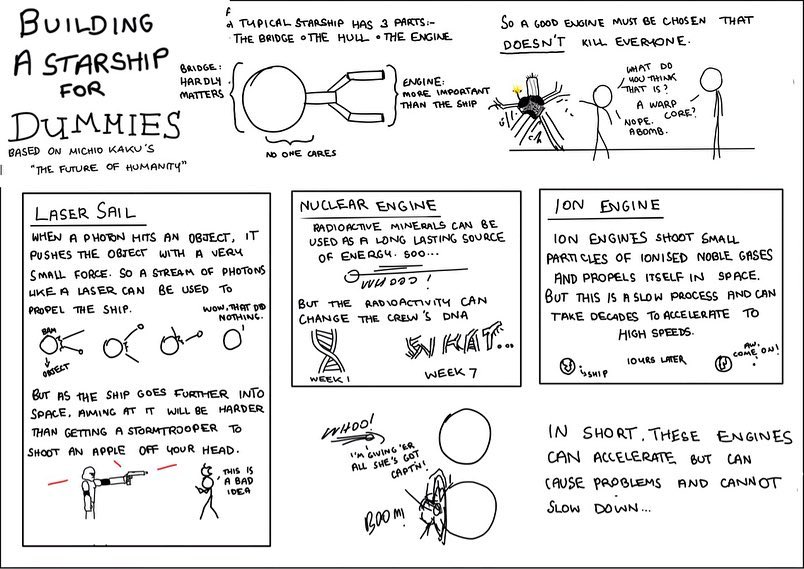 BUILDING
A STARSHIP
FOR
DUMMIES
BASED ON MICHIO KAKU'S
"THE FUTURE OF HUMANITY"
A TYPICAL STARSHIP HAS 3 PARTS:-
THE BRIDGE • THE HULL • THE ENGINE
BRIDGE:
HARDLY
MATTERS
ENGINE:
MORE IMPORTANT
THAN THE SHIP
NO ONE CARES
SO A GOOD ENGINE MUST BE CHOSEN THAT
DOESN'T KILL EVERYONE.
WHAT DO
YOU THINK
THAT IS?
A WARP
CORE?
NOPE.
A BOMB.
LASER SAIL
WHEN A PHOTON HITS AN OBJECT, IT
PUSHES THE OBJECT WITH A VERY
SMALL FORCE. SO A STREAM OF PHOTONS
LIKE A LASER CAN BE USED TO
PROPEL THE SHIP.
WOW, THAT DID
NOTHING.
BAM
OBJECT
BUT AS THE SHIP GOES FURTHER INTO
SPACE, AIMING AT IT WILL BE HARDER
THAN GETTING A STORMTROOPER TO
SHOOT AN APPLE OFF YOUR HEAD.
THIS IS
A BAD
IDEA
NUCLEAR ENGINE
RADIOACTIVE MINERALS CAN BE
USED AS A LONG LASTING SOURCE
OF ENERGY. SOO...
BUT THE RADIOACTIVITY CAN
CHANGE THE CREW'S DNA
WHAT...
WEEK 1
WEEK 7
ION ENGINE
ION ENGINES SHOOT SMALL
PARTICLES OF IONISED NOBLE GASES
AND PROPELS ITSELF IN SPACE.
BUT THIS IS A SLOW PROCESS AND CAN
TAKE DECADES TO ACCELERATE TO
HIGH SPEEDS.
SHIP
10YRS LATER
AW,
COME ON!
WHOO!
I'M GIVING 'ER
ALL SHE'S GOT
CAPT'N!
BOOM!
IN SHORT, THESE ENGINES
CAN ACCELERATE BUT CAN
CAUSE PROBLEMS AND CANNOT
SLOW DOWN...